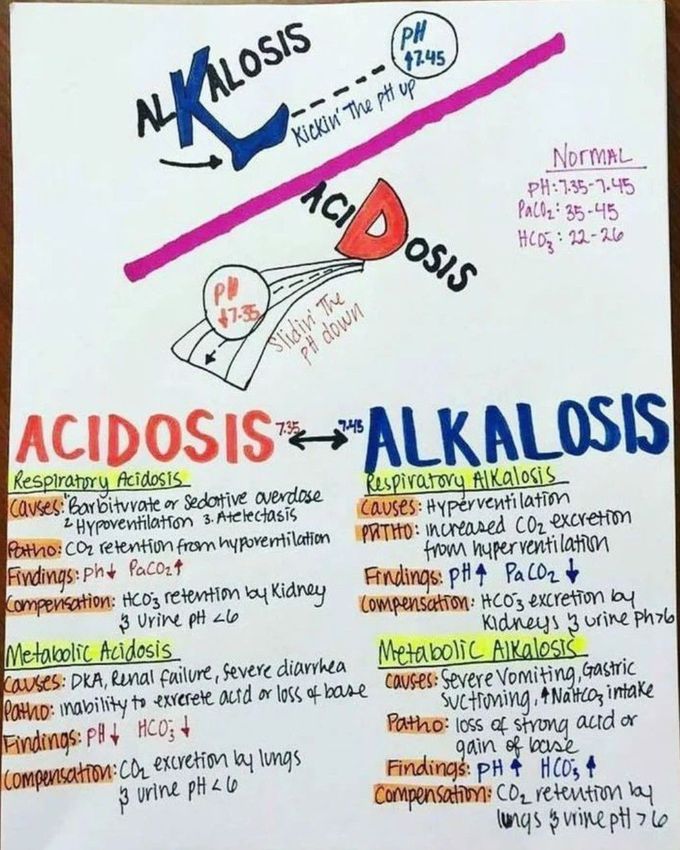 ALKALOSIS
PH
↑7.45
Kickin' The pH up
NORMAL
PH: 7.35-7.45
PaCO₂: 35-45
HCO₃⁻: 22-26
ACIDOSIS
PH
↓7.35
Slidin' The
pH down
ACIDOSIS 7.35 ↔ 7.45 ALKALOSIS
Respiratory Acidosis
Causes: 1. Barbituvate or Sedative overdose
2. Hypoventilation 3. Atelectasis
Patho: CO₂ retention from hypoventilation
Findings: ph↓ PaCO₂↑
Compensation: HCO₃⁻ retention by Kidney
& Urine pH <6
Metabolic Acidosis
Causes: DKA, Renal failure, Severe diarrhea
Patho: inability to exrerete acid or loss of base
Findings: PH↓ HCO₃⁻↓
Compensation: CO₂ excretion by lungs
& urine pH <6
Respiratory Alkalosis
Causes: Hyperventilation
PATHO: increased CO₂ excretion
from hyperventilation
Findings: pH↑ PaCO₂↓
Compensation: HCO₃⁻ excretion by
Kidneys & urine ph>6
Metabolic Alkalosis
Causes: Severe Vomiting, Gastric
Suctioning, ↑NaHCO₃ intake
Patho: loss of strong acid or
gain of base
Findings: PH↑ HCO₃⁻↑
Compensation: CO₂ retention by
lungs & urine pH >6